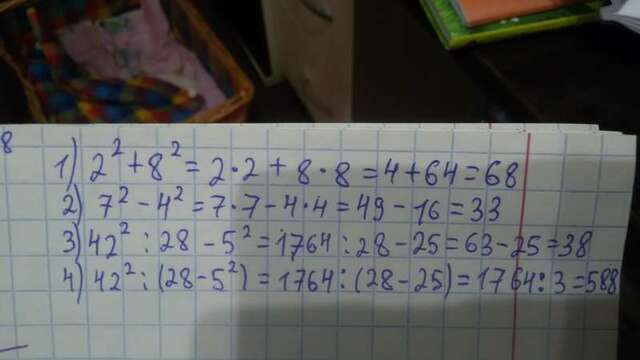 8
1) 2² + 8² = 2·2 + 8·8 = 4 + 64 = 68
2) 7² - 4² = 7·7 - 4·4 = 49 - 16 = 33
3) 42² : 28 - 5² = 1764 : 28 - 25 = 63 - 25 = 38
4) 42² : (28 - 5²) = 1764 : (28 - 25) = 1764 : 3 = 588